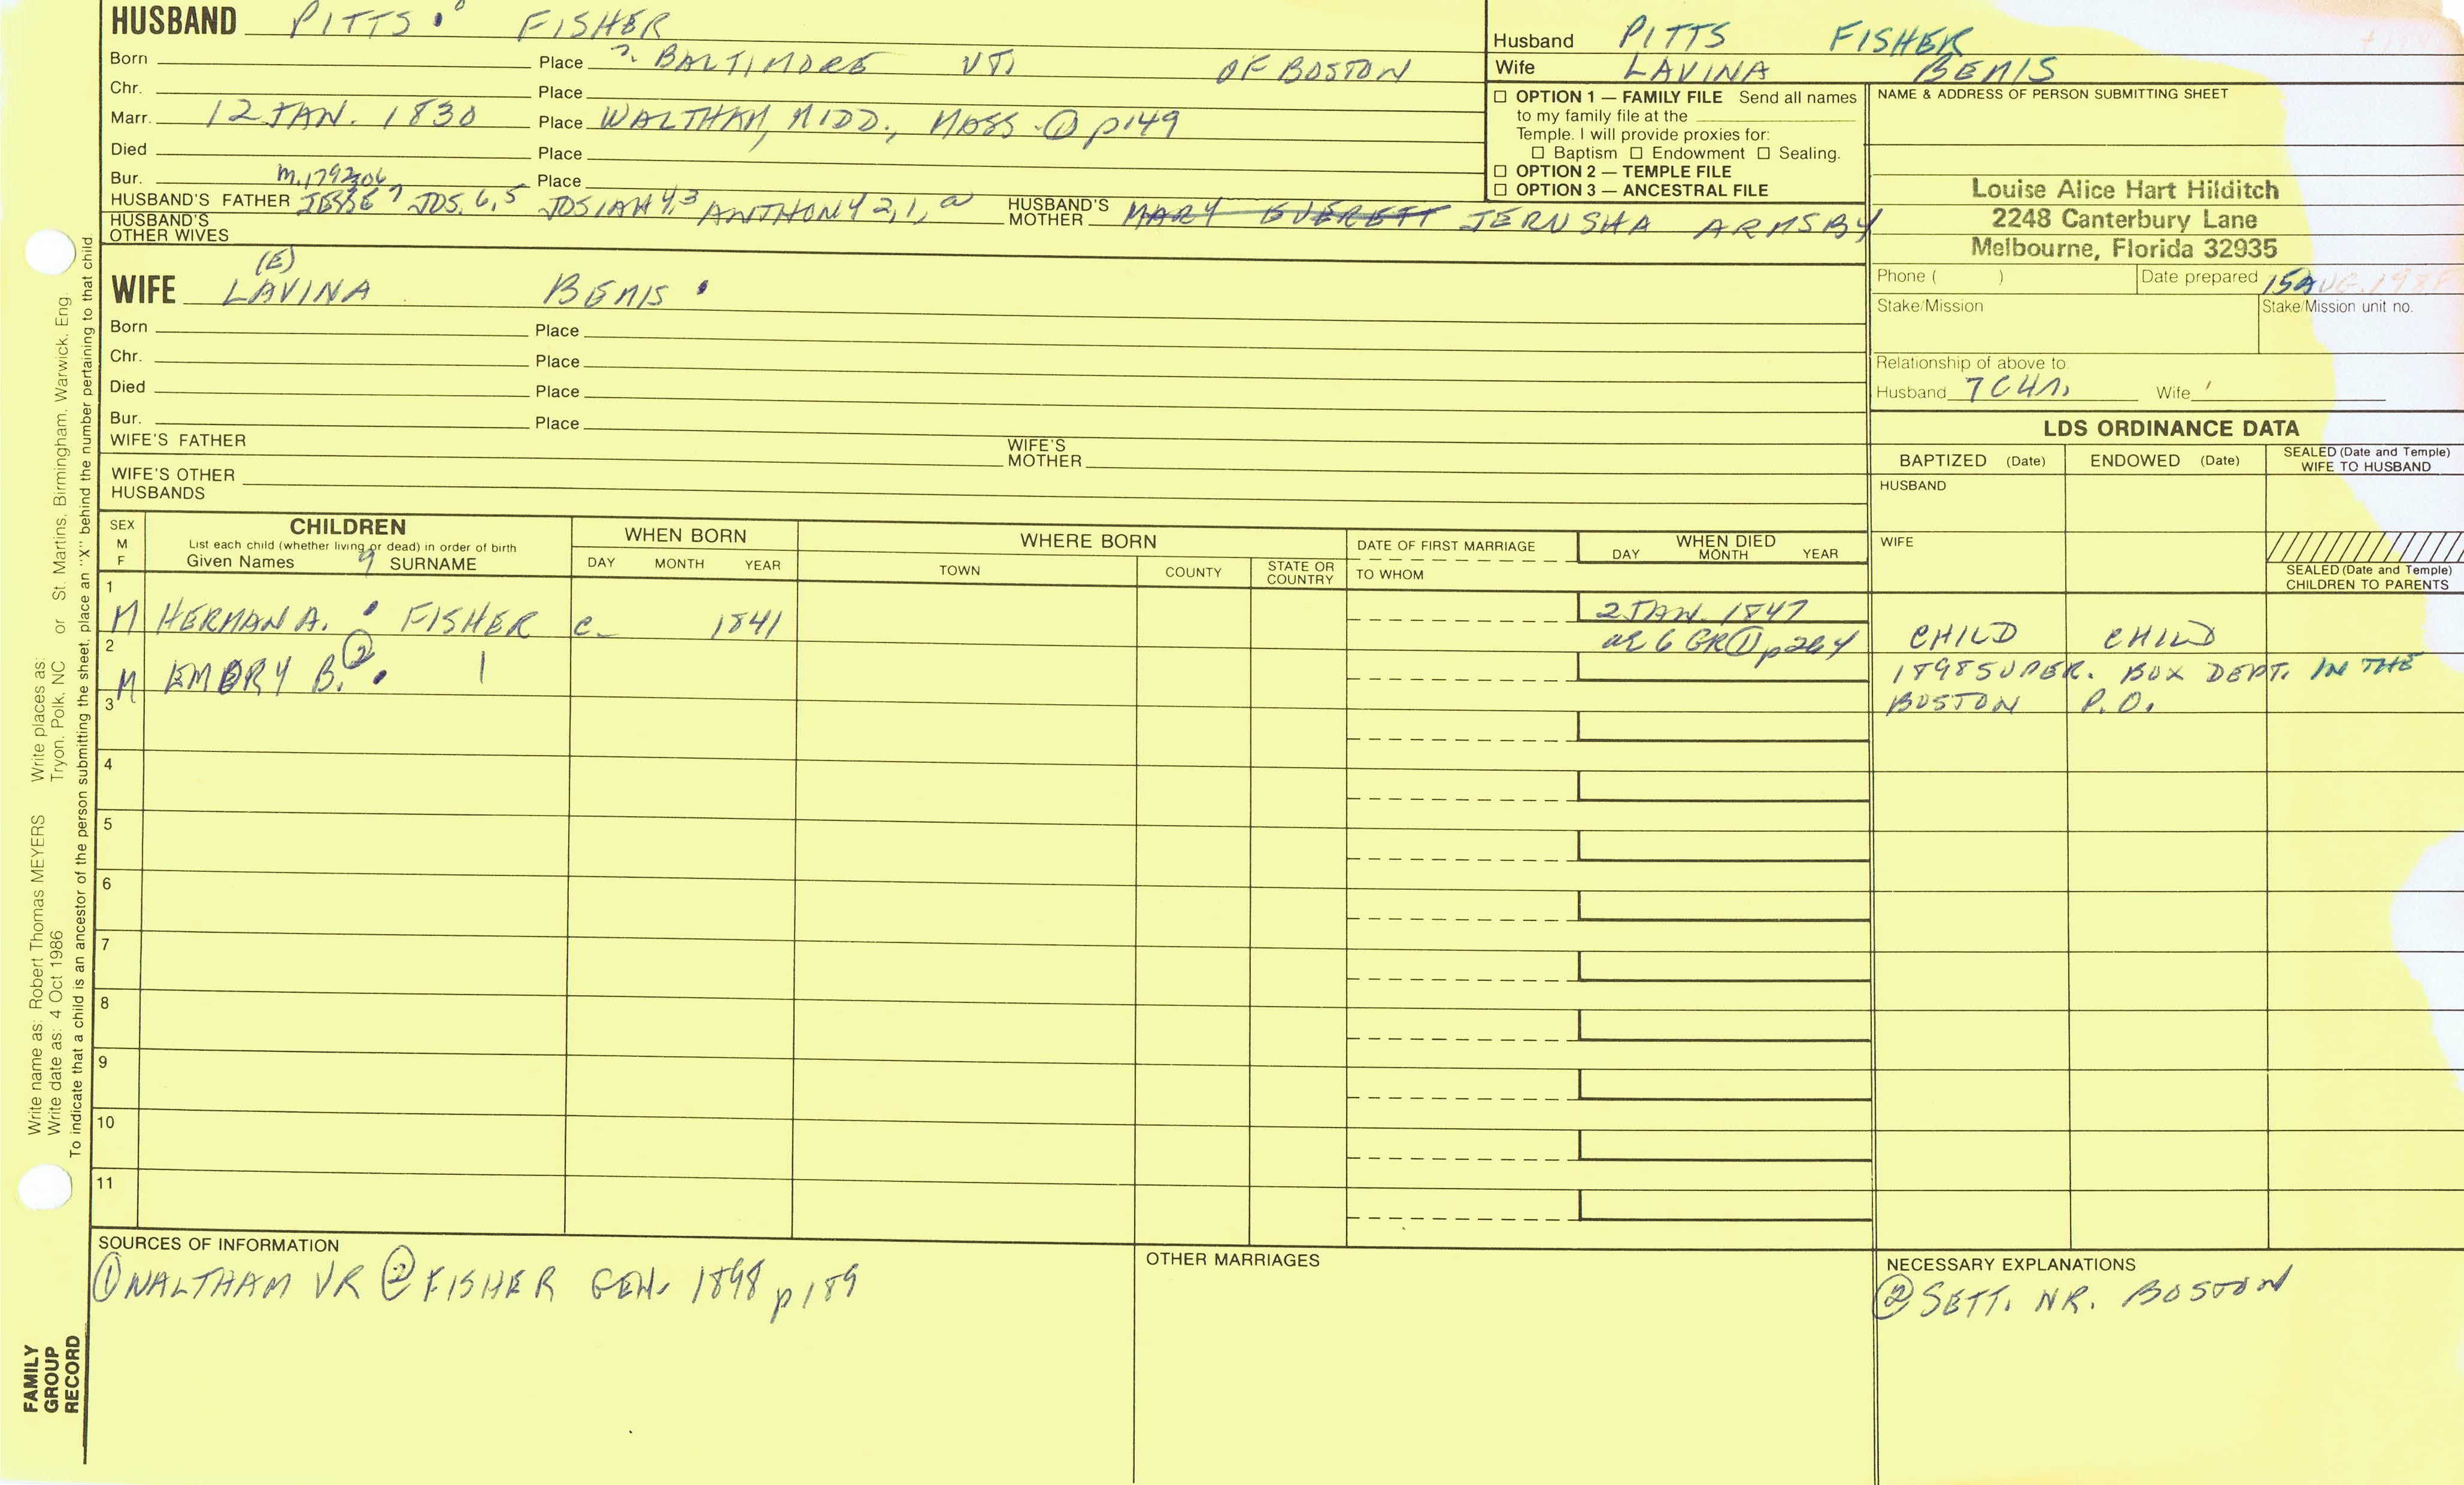 HUSBAND PITTS FISHER
Born Place ? BALTIMORE VT. OF BOSTON
Chr. Place
Marr. 12 JAN. 1830 Place WALTHAM, MIDD., MASS. ① p149
Died Place
Bur. Place
m. 1792
HUSBAND'S FATHER JESSE 7 JOS. 6,5 JOSIAH 4,3 ANTHONY 2,1, HUSBAND'S MOTHER MARY EVERETT JERUSHA ARMSBY
HUSBAND'S OTHER WIVES
(E)
WIFE LAVINA BEMIS
Born Place
Chr. Place
Died Place
Bur. Place
WIFE'S FATHER WIFE'S MOTHER
WIFE'S OTHER HUSBANDS
Husband PITTS FISHER
Wife LAVINA BEMIS
☐ OPTION 1 — FAMILY FILE Send all names
to my family file at the
Temple. I will provide proxies for:
☐ Baptism ☐ Endowment ☐ Sealing.
☐ OPTION 2 — TEMPLE FILE
☐ OPTION 3 — ANCESTRAL FILE
NAME & ADDRESS OF PERSON SUBMITTING SHEET
Louise Alice Hart Hilditch
2248 Canterbury Lane
Melbourne, Florida 32935
Phone ( ) Date prepared 15 AUG. 198
Stake/Mission Stake/Mission unit no.
Relationship of above to:
Husband 7C4R. Wife
LDS ORDINANCE DATA
BAPTIZED (Date) ENDOWED (Date) SEALED (Date and Temple) WIFE TO HUSBAND
HUSBAND
WIFE
SEALED (Date and Temple) CHILDREN TO PARENTS
SEX M F CHILDREN WHEN BORN WHERE BORN DATE OF FIRST MARRIAGE WHEN DIED
List each child (whether living or dead) in order of birth
Given Names 9 SURNAME DAY MONTH YEAR TOWN COUNTY STATE OR COUNTRY TO WHOM DAY MONTH YEAR
1 M HERMAN A. FISHER c 1841 2 JAN. 1847 CHILD CHILD
ae 6 GR① p264
2 M EMORY B. ② 1898 SUPER. BOX DEPT. IN THE
BOSTON P.O.
3
4
5
6
7
8
9
10
11
SOURCES OF INFORMATION
① WALTHAM VR ② FISHER GEN. 1898 p189
OTHER MARRIAGES
NECESSARY EXPLANATIONS
② SETT. NR. BOSTON
Write name as: Robert Thomas MEYERS Write places as: St. Martins, Birmingham, Warwick, Eng.
Write date as: 4 Oct 1986 Tryon, Polk, NC or
To indicate that a child is an ancestor of the person submitting the sheet, place an "X" behind the number pertaining to that child.
FAMILY
GROUP
RECORD